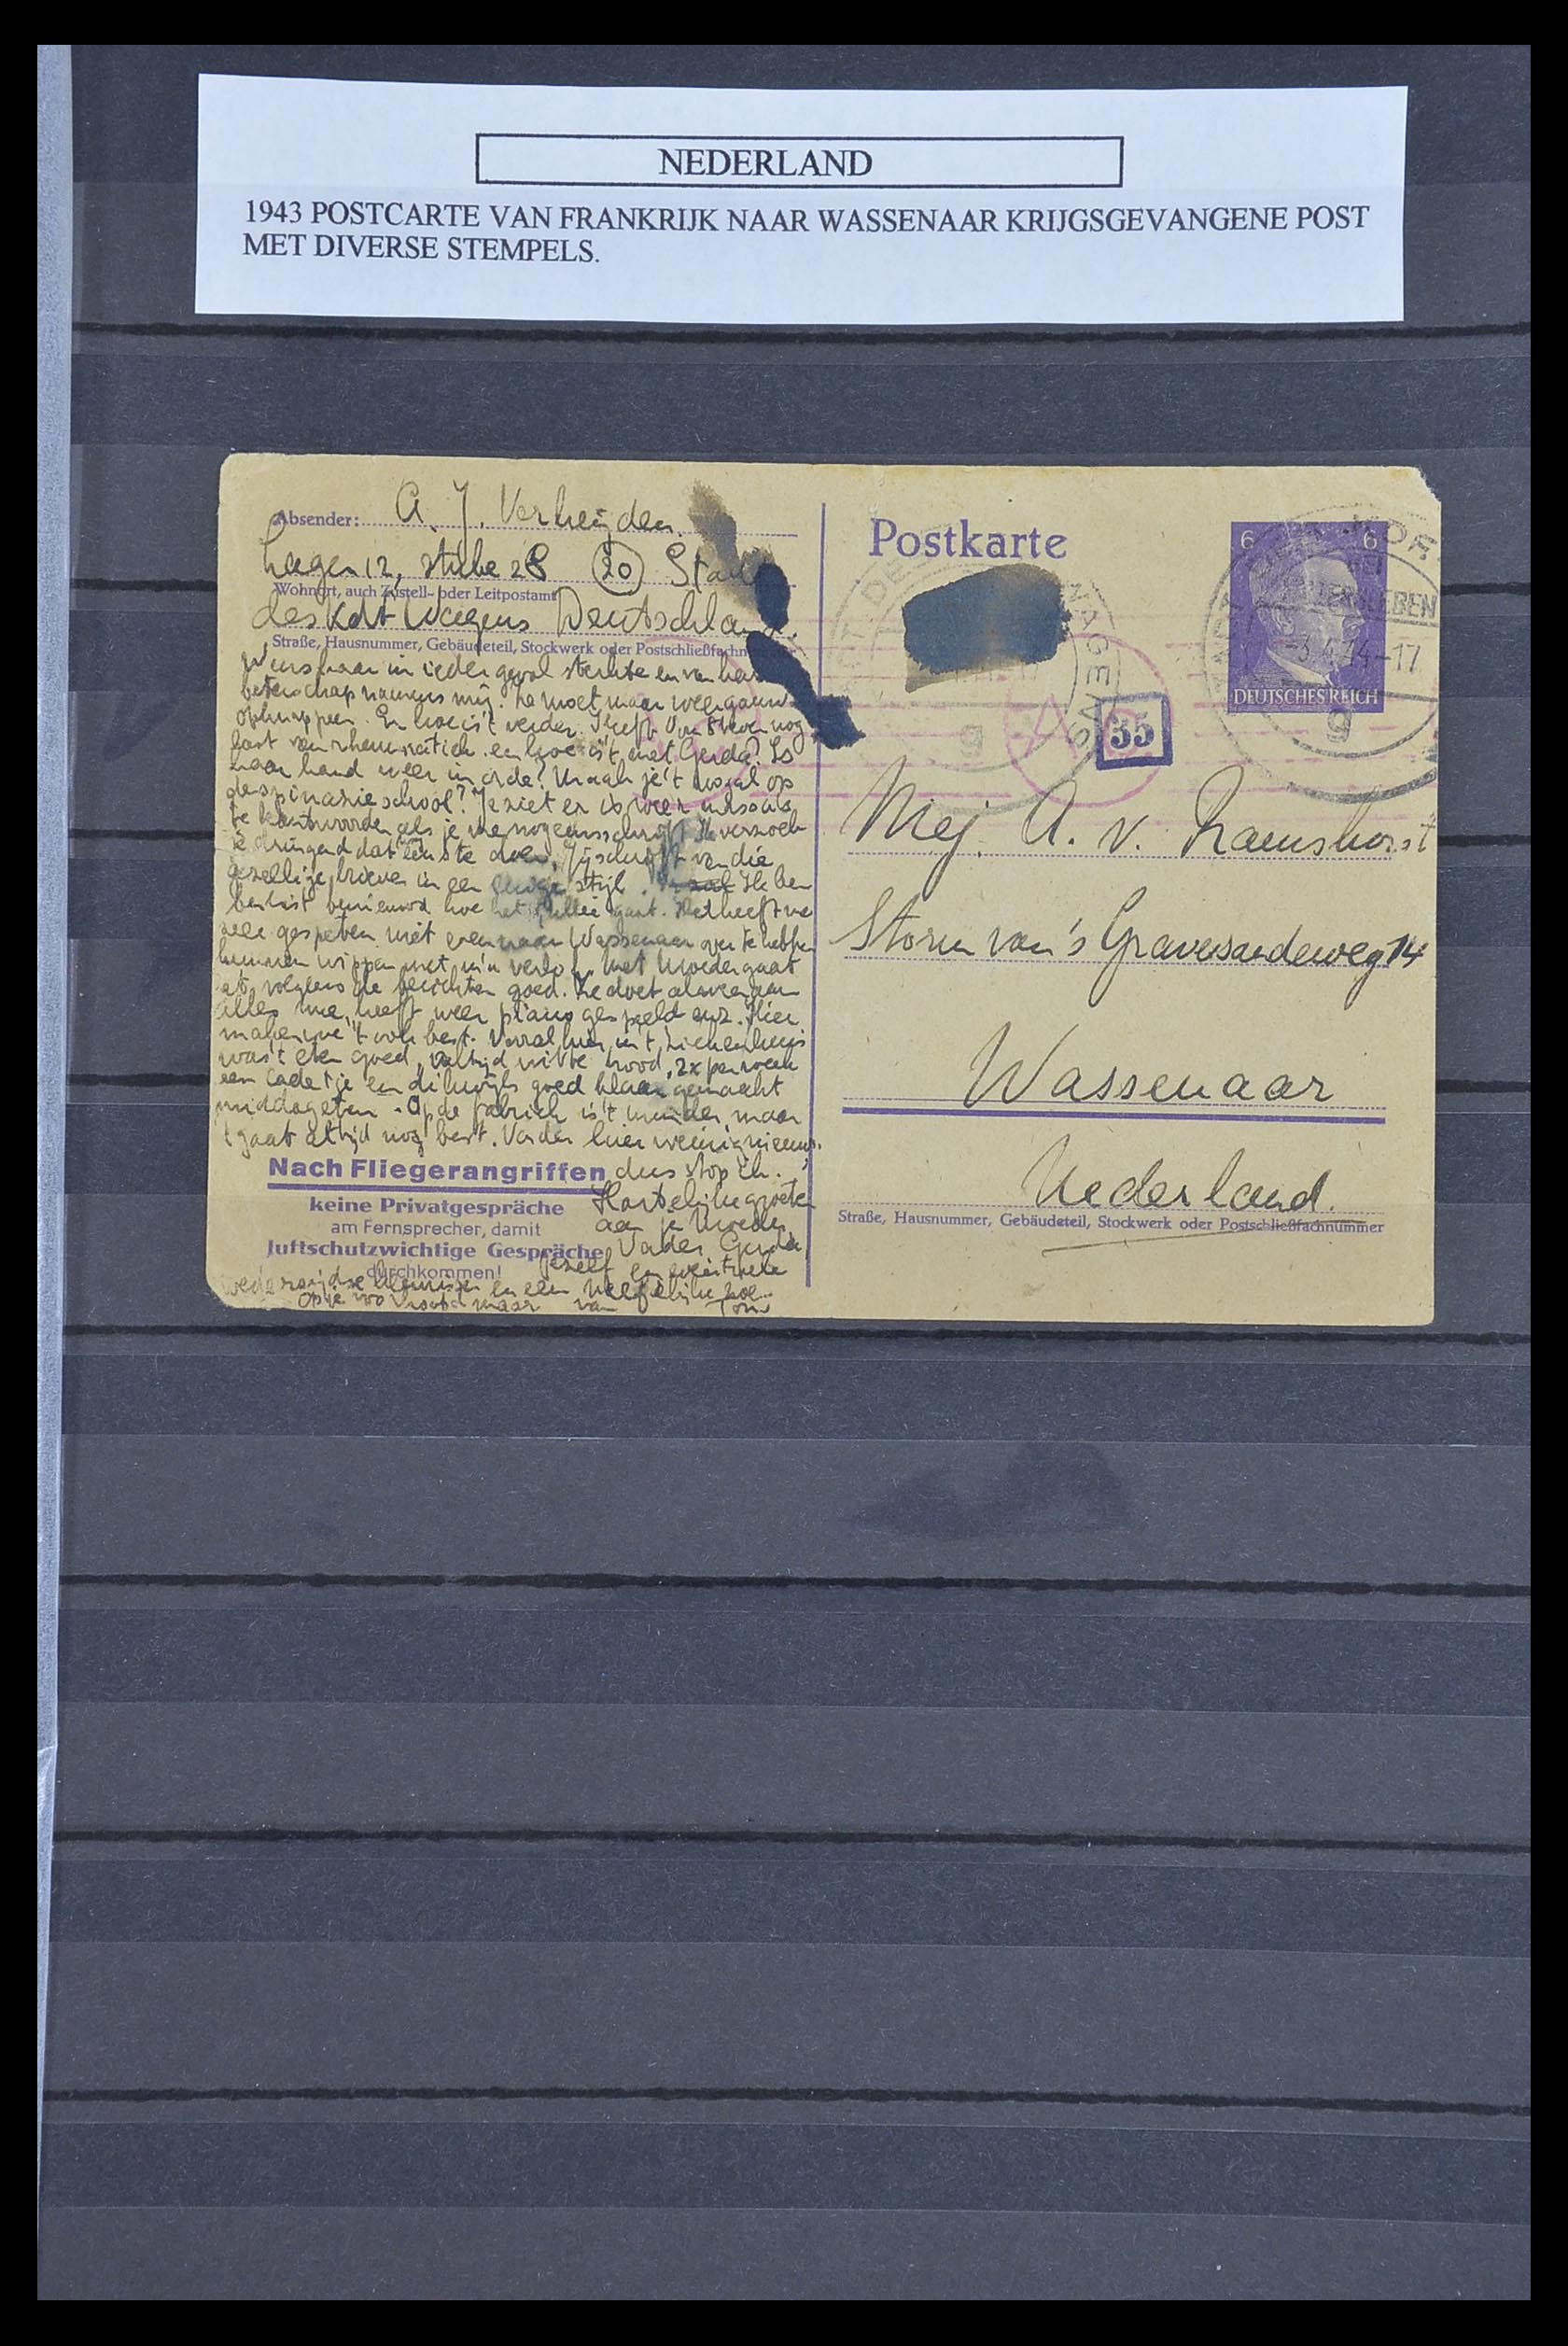 NEDERLAND
1943 POSTCARTE VAN FRANKRIJK NAAR WASSENAAR KRIJGSGEVANGENE POST
MET DIVERSE STEMPELS.
Absender: A. J. Verheijden
Lager 12, stube 28 (20)
Wohnort, auch Zustell- oder Leitpostamt
des Kdf Wagens Deutschland.
Straße, Hausnummer, Gebäudeteil, Stockwerk oder Postschließfachn
haar in ieder geval sterkte en van
beterschap namens mij. Ze moet maar weer gauw
opknappen. En hoe is't verder. Heeft nog
last van rheumatiek en hoe is't met Gerda? Is
haar hand weer in orde? Maak je't nogal op
school? Je ziet er is weer
te beantwoorden als je me nog eens schrijft. Ik verzoek
je dringend dat te doen. Jij schrijft van die
gezellige brieven in een stijl. Ik ben
benieuwd hoe het jullie gaat. Het heeft me
zeer gespeten niet even naar Wassenaar over te hebben
kunnen wippen met m'n verlof. Met Moeder gaat
't volgens de berichten goed. Ze doet alweer aan
alles mee, heeft weer piano gespeeld enz. Hier
maken we 't ook best. Vooral hier in 't ziekenhuis
was't eten goed, altijd witte brood, 2x per week
een cadetje en dikwijls goed klaar gemaakt
middageten. Op de fabriek is't minder, maar
't gaat altijd nog best. Verder hier weinig nieuws.
Nach Fliegerangriffen dus stop ik.
keine Privatgespräche Hartelijke groeten
am Fernsprecher, damit aan je Moeder,
luftschutzwichtige Gespräche Vader, Gerda,
durchkommen! jezelf en eventuele
kennissen en een
van Ton
Postkarte
6 6
DEUTSCHES REICH
-3.4.44-17
g
g
55
Mej. A. v. Ramshorst
Storm van 's Gravesandeweg 74
Wassenaar
Nederland.
Straße, Hausnummer, Gebäudeteil, Stockwerk oder Postschließfachnummer